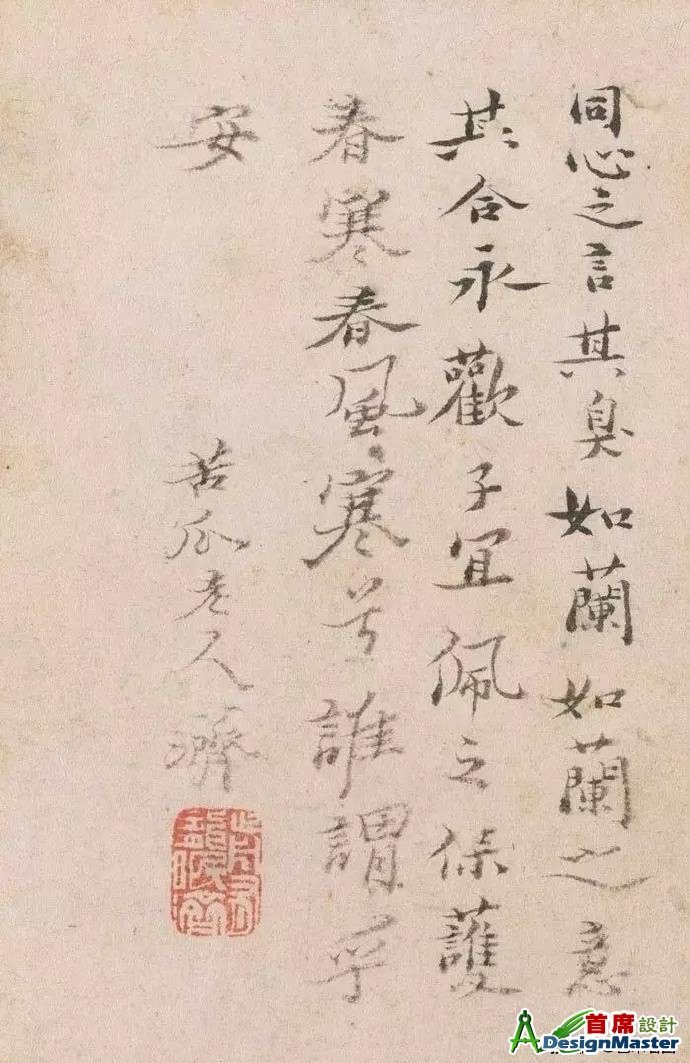 同心之言其臭如蘭如蘭之意
其合永歡子宜佩之保護
春寒春風寒兮誰謂乎
安
苦瓜老人濟
前有龍眠濟
首席設計
ADesignMaster